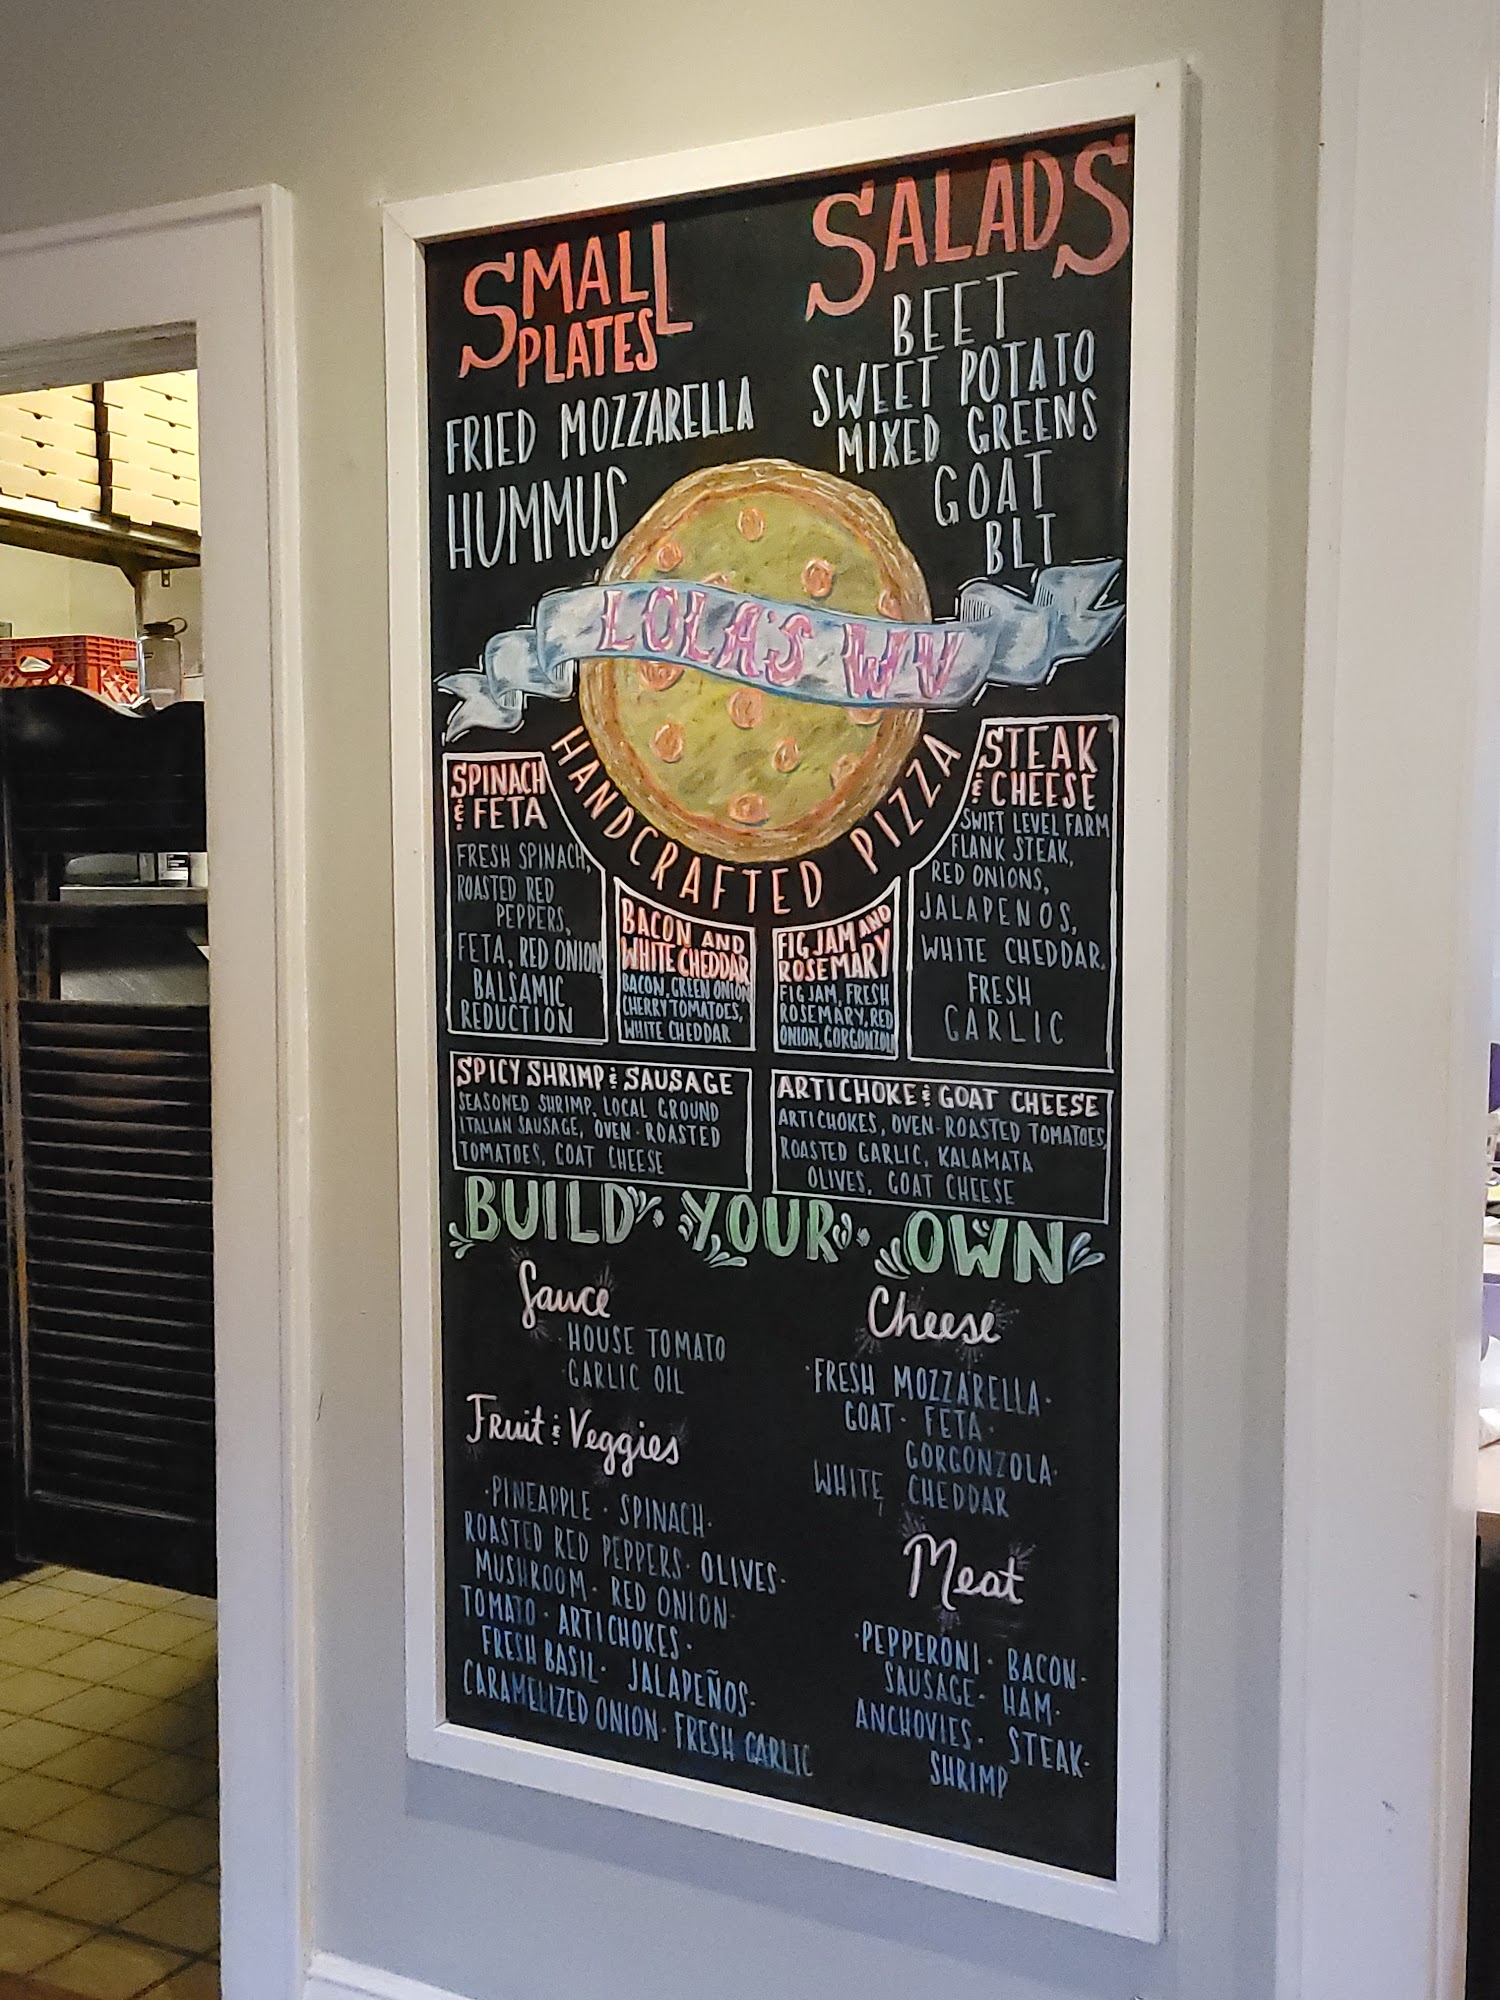 SMALL
PLATES
FRIED MOZZARELLA
HUMMUS
SALADS
BEET
SWEET POTATO
MIXED GREENS
GOAT
BLT
LOLA'S WV
HANDCRAFTED PIZZA
SPINACH
& FETA
FRESH SPINACH,
ROASTED RED
PEPPERS,
FETA, RED ONION
BALSAMIC
REDUCTION
BACON AND
WHITE CHEDDAR
BACON, GREEN ONION
CHERRY TOMATOES,
WHITE CHEDDAR
FIG JAM AND
ROSEMARY
FIG JAM, FRESH
ROSEMARY, RED
ONION, GORGONZOLA
STEAK
& CHEESE
SWIFT LEVEL FARM
FLANK STEAK,
RED ONIONS,
JALAPENOS,
WHITE CHEDDAR,
FRESH
GARLIC
SPICY SHRIMP & SAUSAGE
SEASONED SHRIMP, LOCAL GROUND
ITALIAN SAUSAGE, OVEN-ROASTED
TOMATOES, GOAT CHEESE
ARTICHOKE & GOAT CHEESE
ARTICHOKES, OVEN-ROASTED TOMATOES,
ROASTED GARLIC, KALAMATA
OLIVES, GOAT CHEESE
BUILD YOUR OWN
Sauce
·HOUSE TOMATO
·GARLIC OIL
Fruit & Veggies
·PINEAPPLE · SPINACH·
ROASTED RED PEPPERS· OLIVES·
MUSHROOM· RED ONION·
TOMATO · ARTICHOKES·
FRESH BASIL· JALAPEÑOS·
CARAMELIZED ONION· FRESH GARLIC
Cheese
·FRESH MOZZARELLA·
GOAT· FETA·
GORGONZOLA·
WHITE CHEDDAR
Meat
·PEPPERONI· BACON·
SAUSAGE· HAM·
ANCHOVIES· STEAK·
SHRIMP